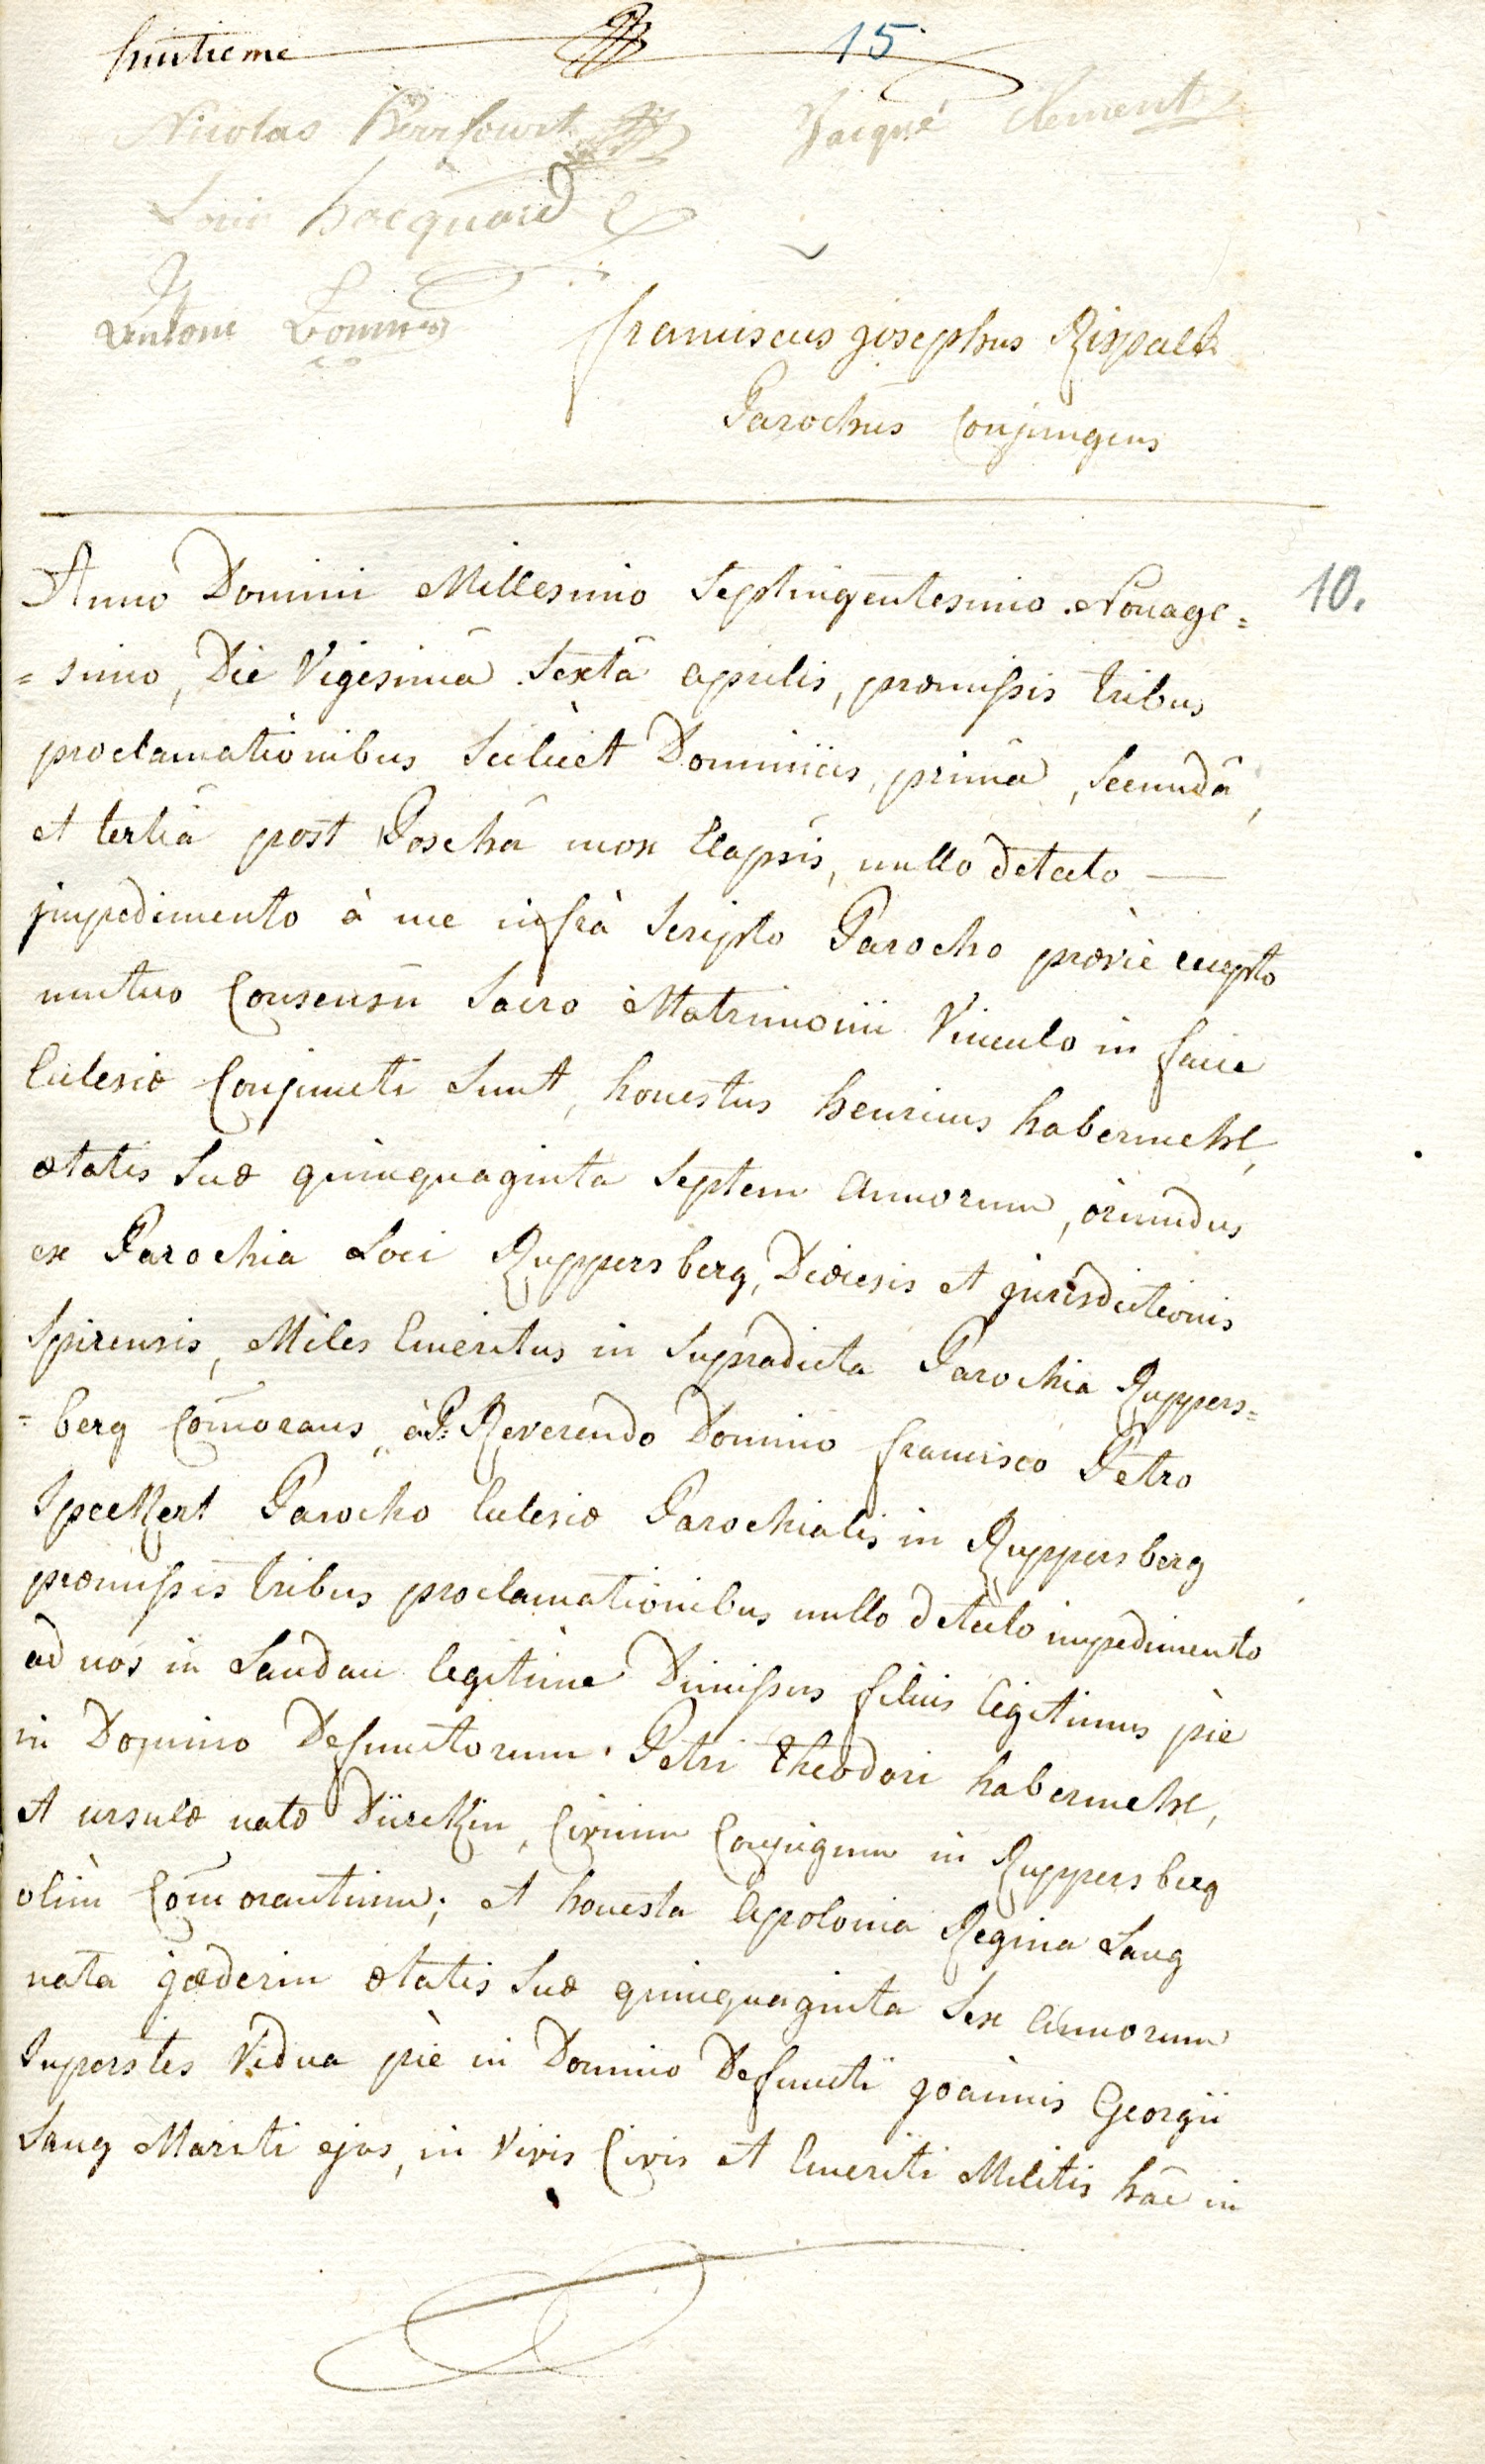 huitieme 15
Nicolas Jacque Clement
Louis hocquard
Antoni
franciscus josephus Rispalt
Parochus Conjungens
Anno Domini Millesimo Septingentesimo Nonage= 10.
= simo, Die Vigesima Sexta aprilis, præmissis tribus
proclamationibus Scilicèt Dominicis, primâ, Secundâ,
et tertiâ post Pascha mox Elapsis, nullo detecto —
jmpedimento à me infrà Scripto Parocho præviè accepto
mutuo Consensu Sacro Matrimonii Vinculo in facie
Ecclesiæ Conjuncti Sunt, honestus henricus habermehl,
ætatis Suæ quinquaginta Septem annorum, oriundus
ex Parochia Loci Ruppersberg, Diœcesis et jurisdictionis
Spirensis, Miles Emeritus in Supradicta Parochia Ruppers=
= berg Com̄orans, à P: Reverendo Domino francisco Petro
Speckert Parocho Ecclesiæ Parochialis in Ruppersberg
præmissis tribus proclamationibus nullo detecto impedimento
ad nos in Landau legitime Dimissus filius legitimus piè
in Domino Defunctorum Petri Theodori habermehl,
et ursulæ natæ Dürckin, Civium Conjugum in Ruppersberg
olim Com̄orantium; et honesta apolonia Regina Lang
nata jæderin ætatis Suæ quinquaginta Sex annorum
Superstes Vidua piè in Domino Defuncti joannis Georgii
Lang Mariti ejus, in Vivis Civis et Emeriti Militis hâc in